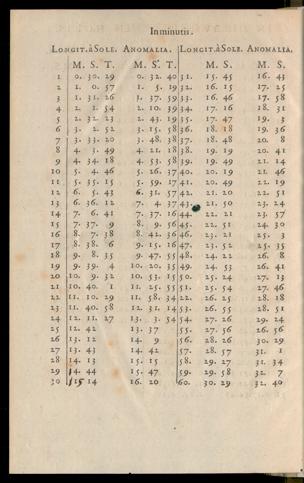 In minutis.
LONGIT. à SOLE. ANOMALIA. LONGIT. à SOLE. ANOMALIA.
M. S. T. M. S. T. M. S. M. S.
1 0. 30. 29 0. 32. 40 31. 15. 45 16. 43
2 1. 0. 57 1. 5. 19 32. 16. 15 17. 25
3 1. 31. 26 1. 37. 59 33. 16. 46 17. 58
4 2. 1. 54 2. 10. 39 34. 17. 16 18. 31
5 2. 32. 23 2. 43. 19 35. 17. 47 19. 3
6 3. 2. 52 3. 15. 58 36. 18. 18 19. 36
7 3. 33. 20 3. 48. 38 37. 18. 48 20. 8
8 4. 3. 49 4. 21. 18 38. 19. 19 20. 41
9 4. 34. 18 4. 53. 58 39. 19. 49 21. 14
10 5. 4. 46 5. 26. 37 40. 20. 19 21. 46
11 5. 35. 15 5. 59. 17 41. 20. 49 22. 19
12 6. 5. 43 6. 31. 57 42. 21. 20 22. 51
13 6. 36. 12 7. 4. 37 43. 21. 50 23. 24
14 7. 6. 41 7. 37. 16 44. 22. 21 23. 57
15 7. 37. 9 8. 9. 56 45. 22. 51 24. 30
16 8. 7. 38 8. 42. 36 46. 23. 21 25. 3
17 8. 38. 6 9. 15. 16 47. 23. 52 25. 35
18 9. 8. 35 9. 47. 55 48. 24. 22 26. 8
19 9. 39. 4 10. 20. 35 49. 24. 53 26. 41
20 10. 9. 32 10. 53. 15 50. 25. 24 27. 13
21 10. 40. 1 11. 25. 55 51. 25. 54 27. 46
22 11. 10. 29 11. 58. 34 52. 26. 25 28. 18
23 11. 40. 58 12. 31. 14 53. 26. 55 28. 51
24 12. 11. 27 13. 3. 54 54. 27. 26 29. 24
25 12. 42 13. 37 55. 27. 56 26. 56
26 13. 12 14. 9 56. 28. 26 30. 29
27 13. 43 14. 42 57. 28. 57 31. 1
28 14. 13 15. 15 58. 29. 27 31. 34
29 14. 44 15. 47 59. 29. 58 32. 7
30 15 14 16. 20 60. 30. 29 32. 40